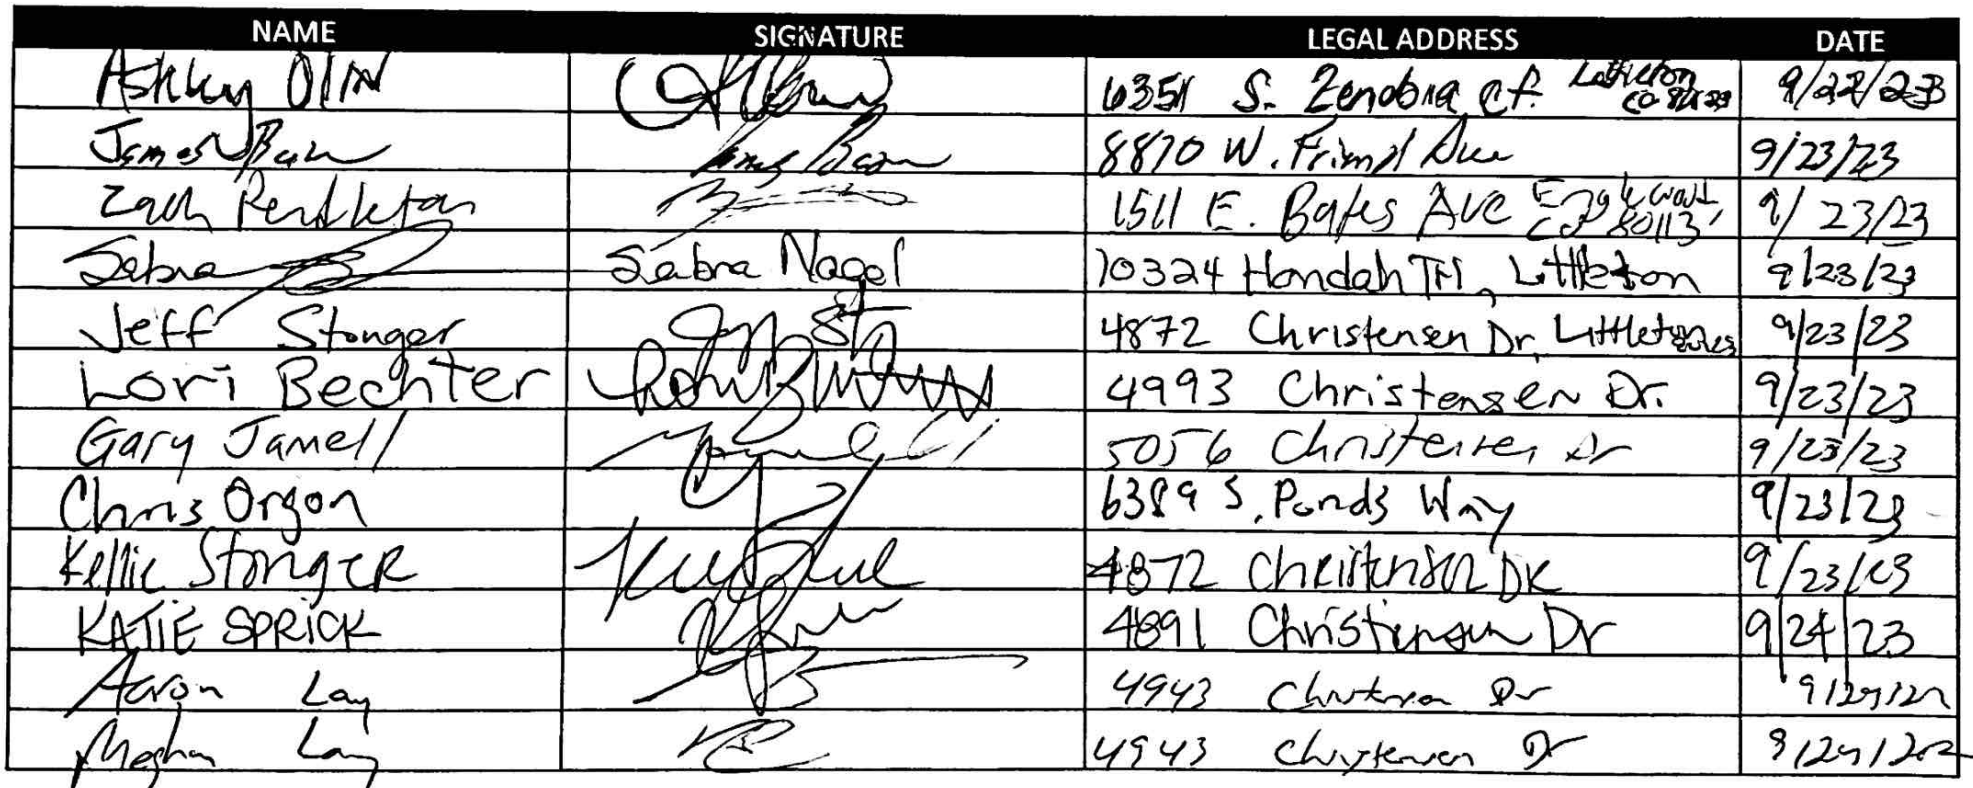 NAME SIGNATURE LEGAL ADDRESS DATE
Ashley Olin 6351 S. Zenobia Ct. Littleton CO 9/22/23
James 8870 W. Ave 9/23/23
Zach Pendleton 1511 E. Bates Ave Englewood, CO 80113 9/23/23
Sabra Sabra Nagel 10324 Hondah Trl, Littleton 9/23/23
Jeff Stonger 4872 Christensen Dr, Littleton 9/23/23
Lori Bechter 4993 Christensen Dr. 9/23/23
Gary Jamell 5056 Christensen Dr 9/23/23
Chris Orgon 6389 S. Ponds Way 9/23/23
Kellie Stonger 4872 Christensen DR 9/23/23
KATIE SPRICK 4891 Christensen Dr 9/24/23
Aaron Lay 4943 Christensen Dr
Meghan Lay 4943 Christensen Dr